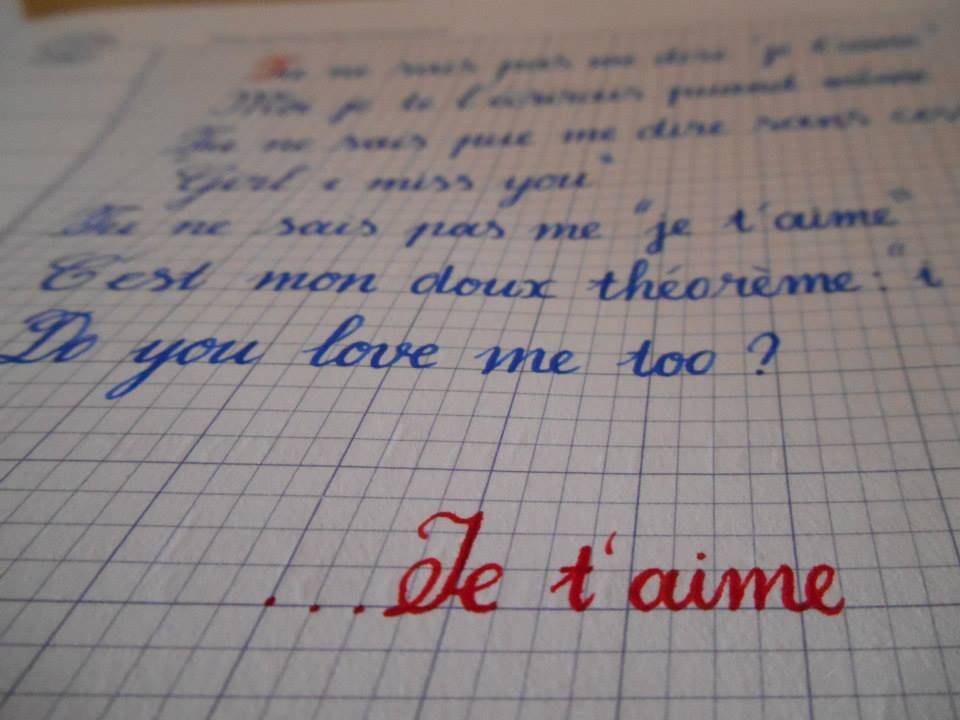 Tu ne sais pas me dire "je t'aime"
Moi je te l'écrirais quand même
Tu ne sais que me dire sans
"Girl i miss you"
Tu ne sais pas me "je t'aime"
C'est mon doux théorème : "i
Do you love me too ?
...Je t'aime